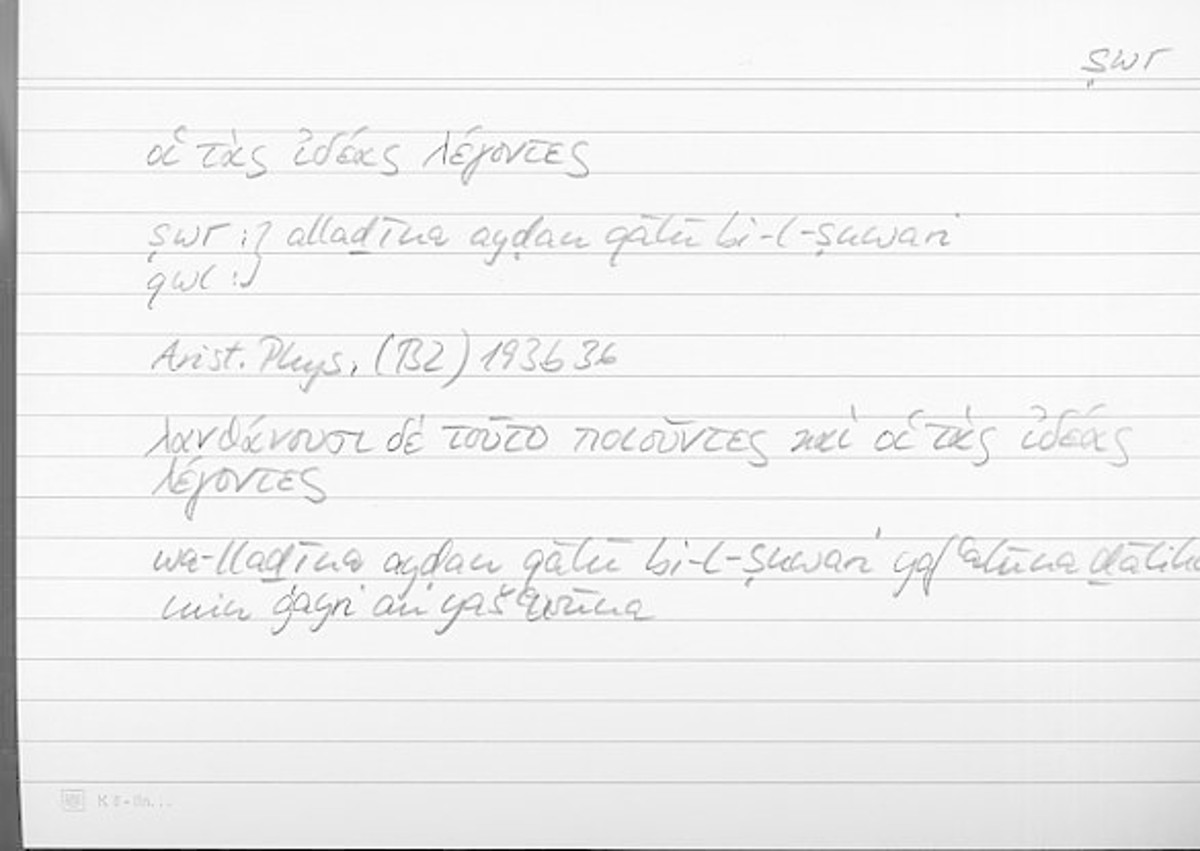 ṣwr
οἱ τὰς ἰδέας λέγοντες
ṣwr :} allaḏīna ayḍan qālū bi-l-ṣuwari
qwl :}
Arist. Phys. (B2) 193b36
λανθάνουσι δὲ τοῦτο ποιοῦντες καὶ οἱ τὰς ἰδέας
λέγοντες
wa-llaḏīna ayḍan qālū bi-l-ṣuwari yafʿalūna ḏālika
min ġayri an yašʿurūna